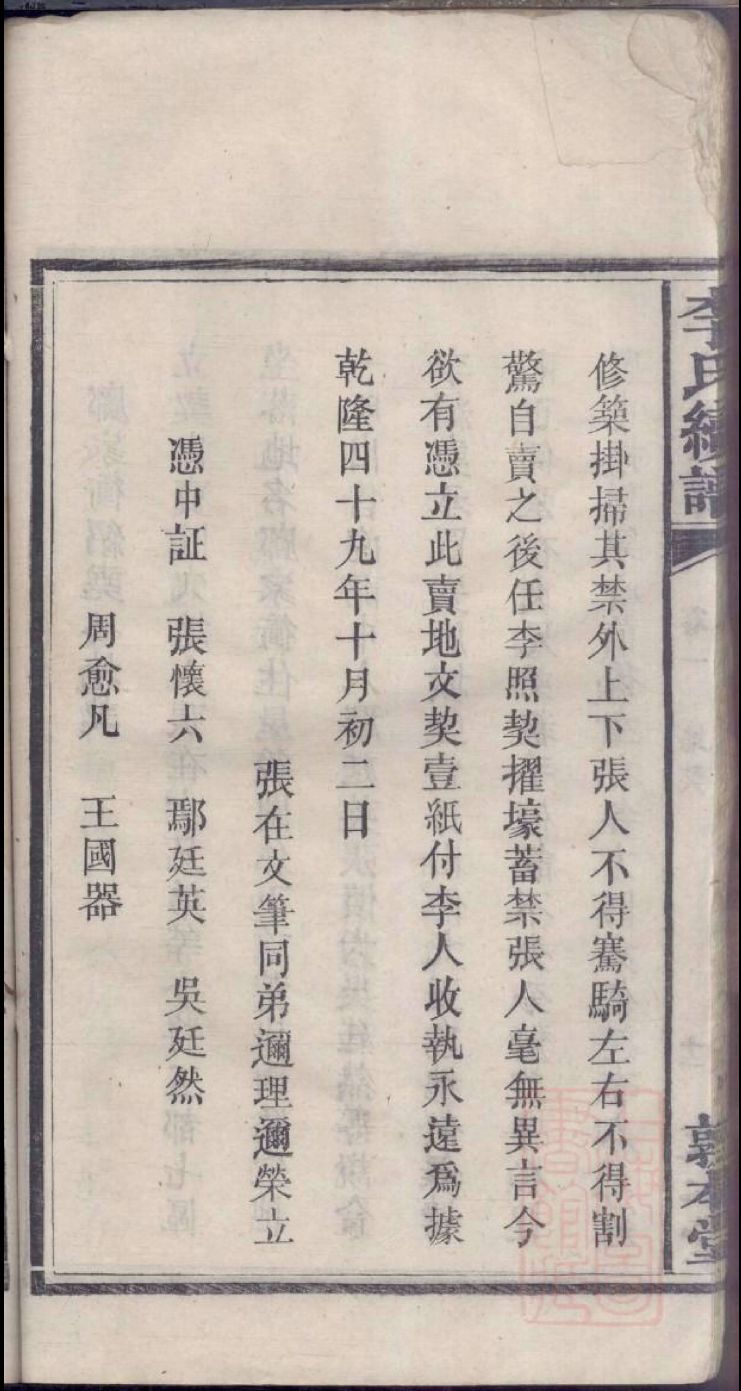 李氏續譜
敦本堂
修築掛掃其禁外上下張人不得騫騎左右不得割
驚自賣之後任李照契擢壕蓄禁張人毫無異言今
欲有憑立此賣地文契壹紙付李人收執永遠爲據
乾隆四十九年十月初二日
張在文筆同弟邇理邇榮立
憑中証 張懷六 鄢廷英 吳廷然
周愈凡 王國器